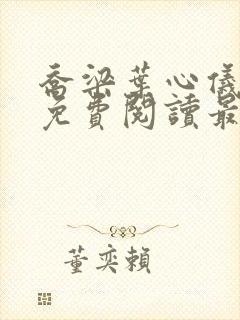 喬梁葉心儀
免費閱讀最
董奕賴